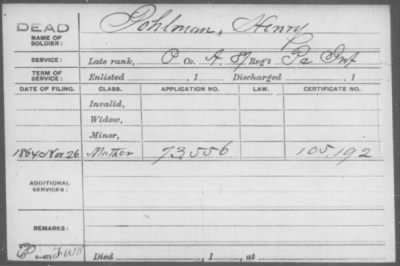 DEAD Pohlman, Henry
NAME OF SOLDIER:
SERVICE: Late rank, P Co. A, 87 Reg't Pa Inf
TERM OF SERVICE: Enlisted , 1 Discharged , 1
DATE OF FILING. CLASS. APPLICATION NO. LAW. CERTIFICATE NO.
Invalid,
Widow,
Minor,
1864 Nov 26 Mother 73556 105,192
ADDITIONAL SERVICES:
REMARKS:
Died , 1 , at